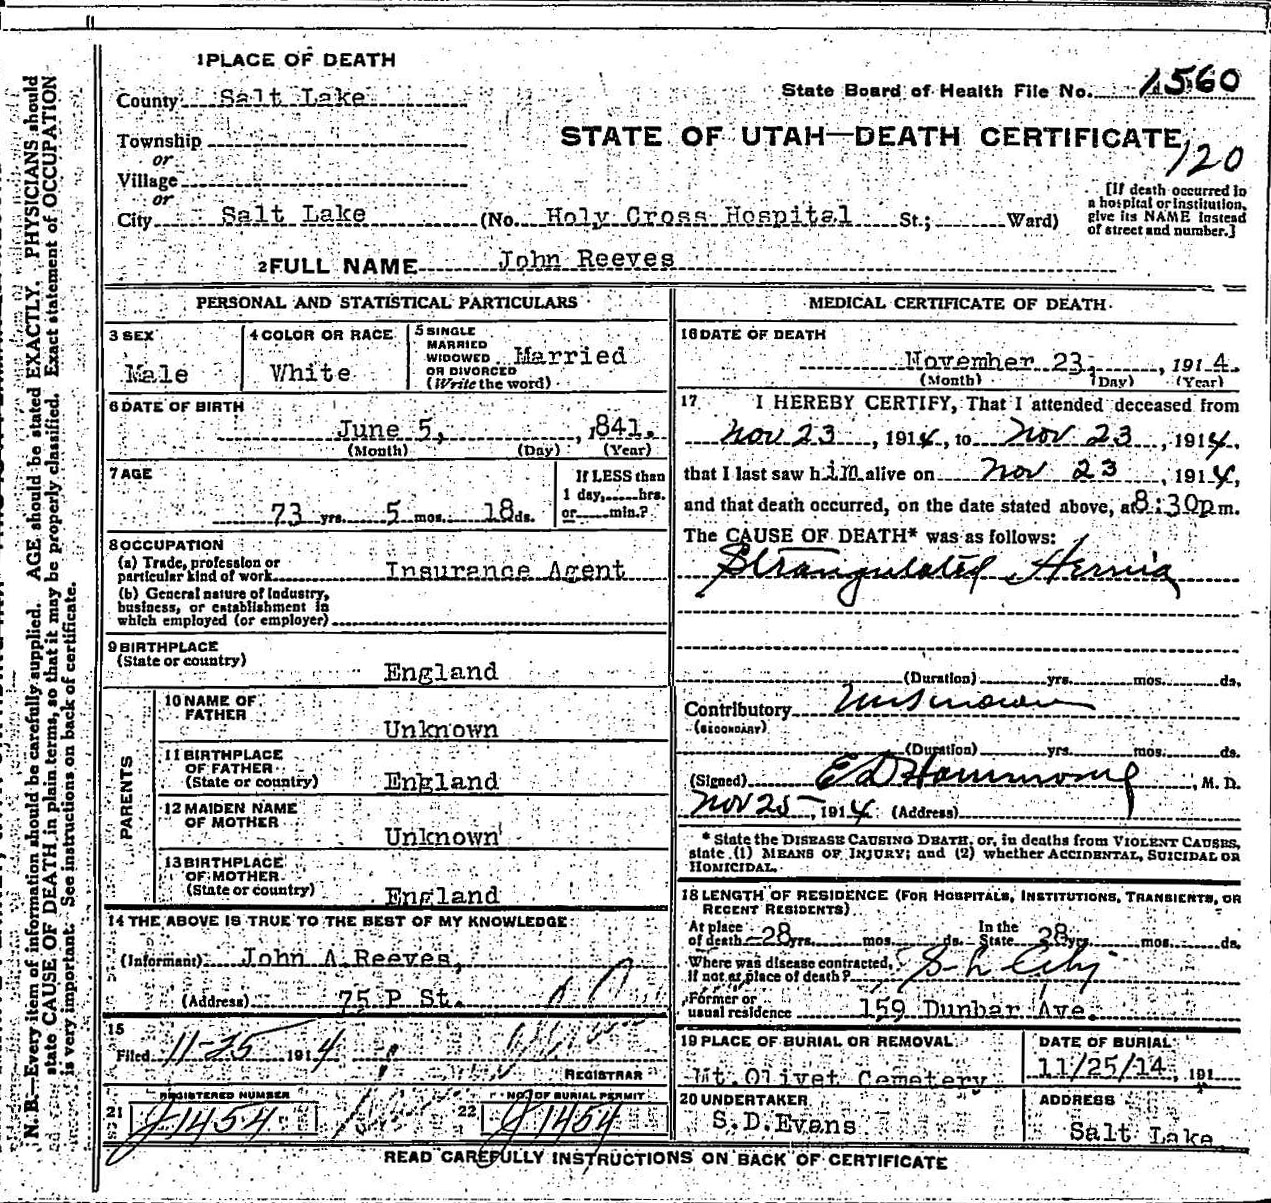 1 PLACE OF DEATH
County Salt Lake
State Board of Health File No. 1560
Township
STATE OF UTAH—DEATH CERTIFICATE
120
or
Village
or
City Salt Lake (No. Holy Cross Hospital St.; Ward)
[If death occurred in
a hospital or institution,
give its NAME instead
of street and number.]
2 FULL NAME John Reeves
PERSONAL AND STATISTICAL PARTICULARS
3 SEX
Male
4 COLOR OR RACE
White
5 SINGLE
MARRIED
WIDOWED
OR DIVORCED
(Write the word)
Married
6 DATE OF BIRTH
June 5, , 1841.
(Month) (Day) (Year)
7 AGE
73 yrs. 5 mos. 18 ds.
If LESS than
1 day, hrs.
or min.?
8 OCCUPATION
(a) Trade, profession or
particular kind of work Insurance Agent
(b) General nature of Industry,
business, or establishment in
which employed (or employer)
9 BIRTHPLACE
(State or country)
England
PARENTS
10 NAME OF
FATHER
Unknown
11 BIRTHPLACE
OF FATHER
(State or country)
England
12 MAIDEN NAME
OF MOTHER
Unknown
13 BIRTHPLACE
OF MOTHER
(State or country)
England
14 THE ABOVE IS TRUE TO THE BEST OF MY KNOWLEDGE
(Informant) John A Reeves,
(Address) 75 P St.
15
Filed 11-25 1914
REGISTRAR
REGISTERED NUMBER
21 J1454
NO. OF BURIAL PERMIT
22 J1454
MEDICAL CERTIFICATE OF DEATH
16 DATE OF DEATH
November 23, , 1914.
(Month) (Day) (Year)
17 I HEREBY CERTIFY, That I attended deceased from
Nov 23, 1914, to Nov 23, 1914.
that I last saw him alive on Nov 23, 1914,
and that death occurred, on the date stated above, at 8:30p m.
The CAUSE OF DEATH* was as follows:
Strangulated Hernia
(Duration) yrs. mos. ds.
Contributory Unknown
(SECONDARY)
(Duration) yrs. mos. ds.
(Signed) E D Hammond, M. D.
Nov 25, 1914 (Address)
* State the DISEASE CAUSING DEATH, or, in deaths from VIOLENT CAUSES,
state (1) MEANS OF INJURY; and (2) whether ACCIDENTAL, SUICIDAL OR
HOMICIDAL.
18 LENGTH OF RESIDENCE (FOR HOSPITALS, INSTITUTIONS, TRANSIENTS, OR
RECENT RESIDENTS)
At place
of death 28 yrs. mos. ds.
In the
State 38 yrs. mos. ds.
Where was disease contracted,
If not at place of death? S. L City
Former or
usual residence 159 Dunbar Ave.
19 PLACE OF BURIAL OR REMOVAL
Mt. Olivet Cemetery
DATE OF BURIAL
11/25/14, 191
20 UNDERTAKER
S.D.Evans
ADDRESS
Salt Lake
READ CAREFULLY INSTRUCTIONS ON BACK OF CERTIFICATE
N. B.—Every item of information should be carefully supplied. AGE should be stated EXACTLY. PHYSICIANS should
state CAUSE OF DEATH in plain terms, so that it may be properly classified. Exact statement of OCCUPATION
is very important. See instructions on back of certificate.